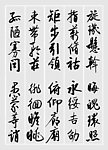 旋璣懸斡 晦魄環照
指薪修祜 永綏吉劭
矩步引領 俯仰廊廟
束帶矜莊 徘徊瞻眺
孤陋寡聞 愚蒙等誚